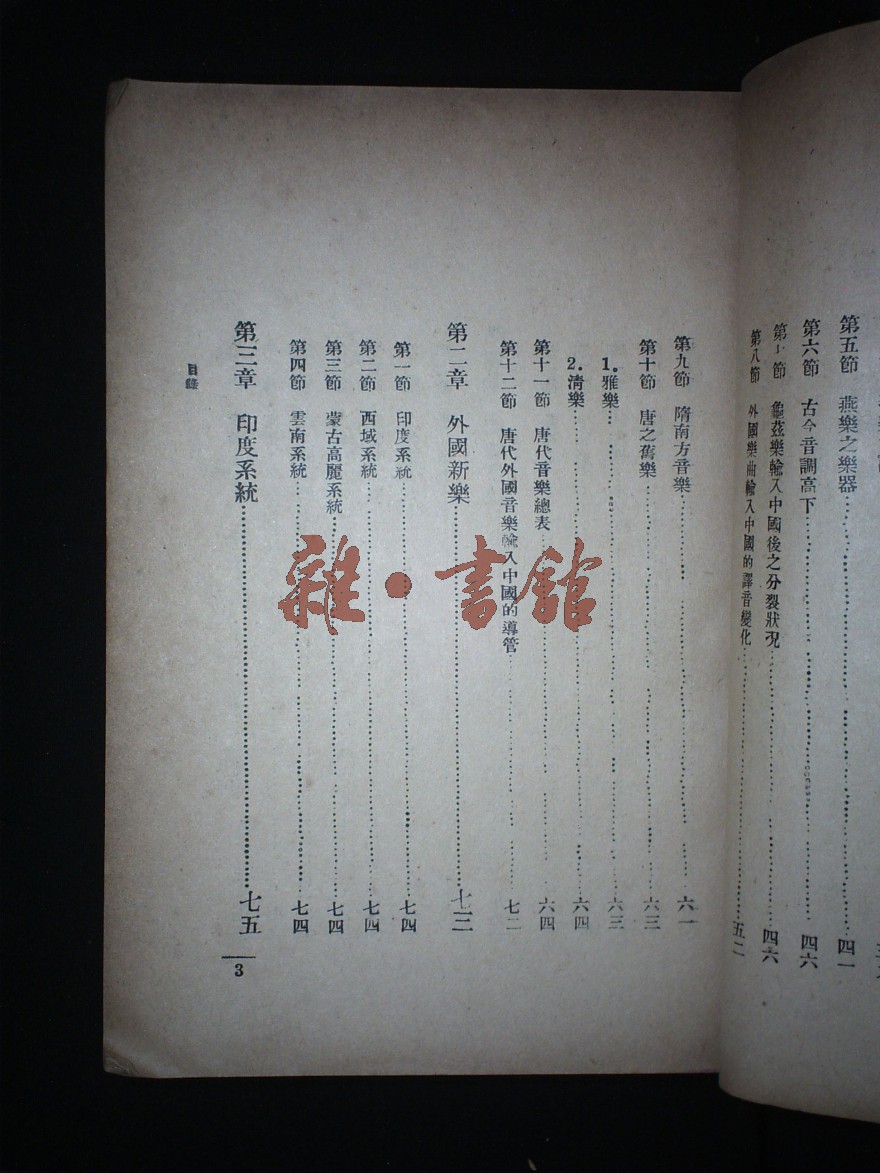 第五節　燕樂之樂器……四一
第六節　古今音調高下……四六
節　龜茲樂輸入中國後之分裂狀況……四六
第八節　外國樂曲輸入中國的譯音變化……五二
第九節　隋南方音樂……六一
第十節　唐之舊樂……六三
1.雅樂……六三
2.清樂……六四
第十一節　唐代音樂總表……六四
第十二節　唐代外國音樂輸入中國的導管……七二
第二章　外國新樂……七三
第一節　印度系統……七四
第二節　西域系統……七四
第三節　蒙古高麗系統……七四
第四節　雲南系統……七四
第三章　印度系統……七五
目錄
3
雜·書館